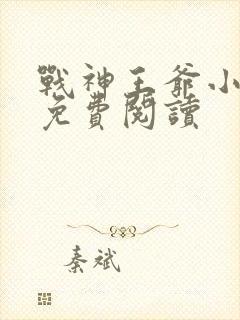 戰神王爺小
免費閱讀
秦斌